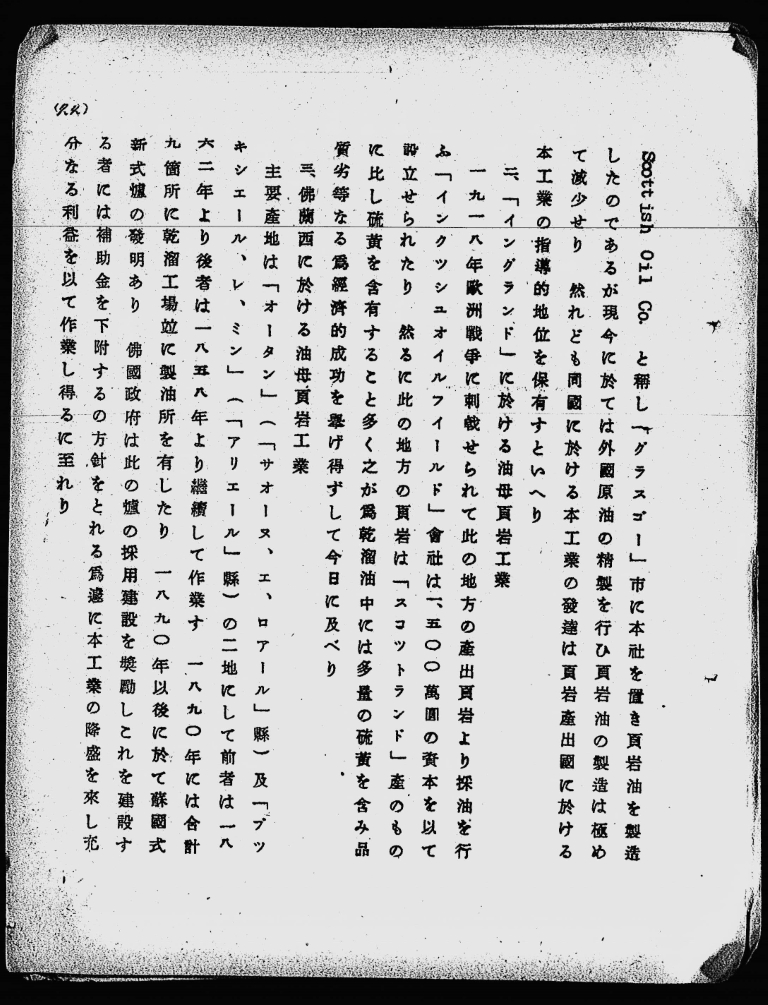 Scottish Oil Co. と稱し「グラスゴー」市に本社を置き頁岩油を製造
したのであるが現今に於ては外國原油の精製を行ひ頁岩油の製造は極め
て減少せり 然れども同國に於ける本工業の發達は頁岩產出國に於ける
本工業の指導的地位を保有すといへり
二、「イングランド」に於ける油母頁岩工業
一九一八年歐洲戰爭に刺戟せられて此の地方の產出頁岩より採油を行
ふ「インクツシユオイルフイールド」會社は一、五〇〇萬圓の資本を以て
設立せられたり 然るに此の地方の頁岩は「スコツトランド」產のもの
に比し硫黃を含有すること多く之が爲乾溜油中には多量の硫黃を含み品
質劣等なる爲經濟的成功を擧げ得ずして今日に及べり
三、佛蘭西に於ける油母頁岩工業
主要產地は「オータン」（「サオーヌ、エ、ロアール」縣）及「ブツ
キシエール、レ、ミン」（「アリエール」縣）の二地にして前者は一八
六二年より後者は一八五八年より繼續して作業す 一八九〇年には合計
九箇所に乾溜工場竝に製油所を有したり 一八九〇年以後に於て蘇國式
新式爐の發明あり 佛國政府は此の爐の採用建設を奬勵しこれを建設す
る者には補助金を下附するの方針をとれる爲遽に本工業の隆盛を來し充
分なる利益を以て作業し得るに至れり